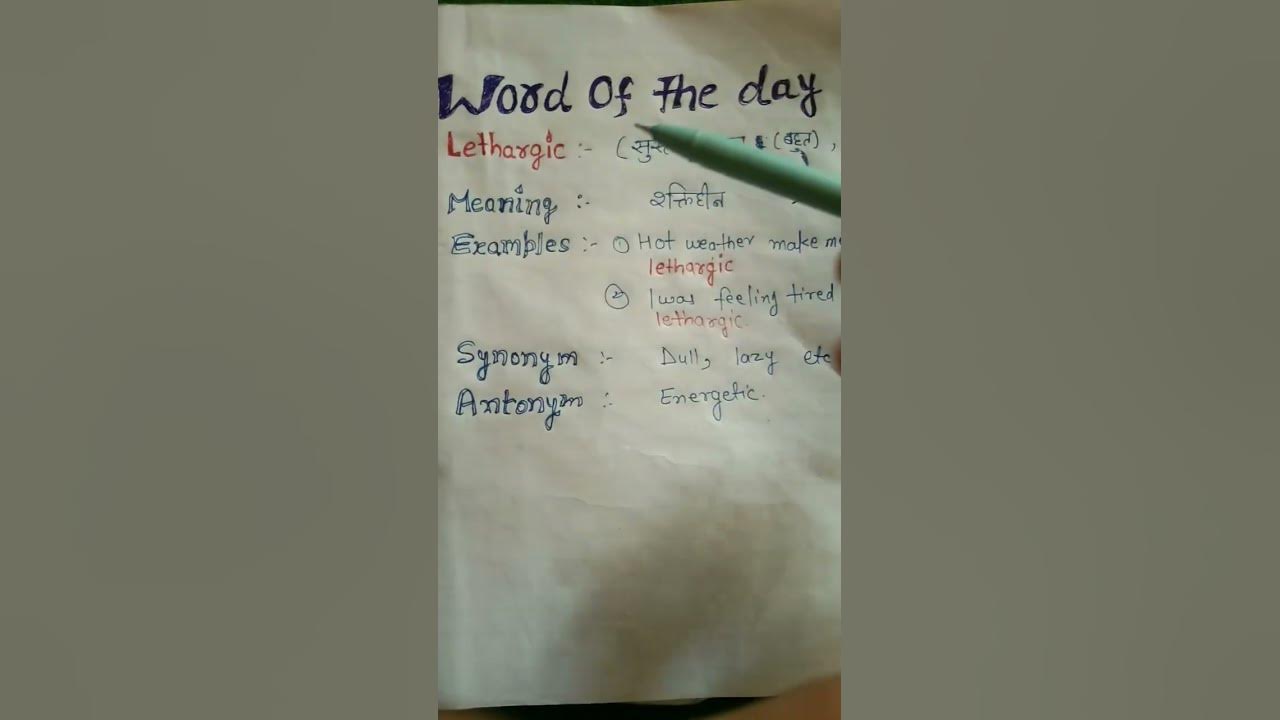 Word Of The day
Lethargic :- ( (बहुत) ,
Meaning :- शक्तिहीन
Examples :- ① Hot weather make me
lethargic
② I was feeling tired
lethargic.
Synonym :- Dull, lazy etc
Antonym :- Energetic.